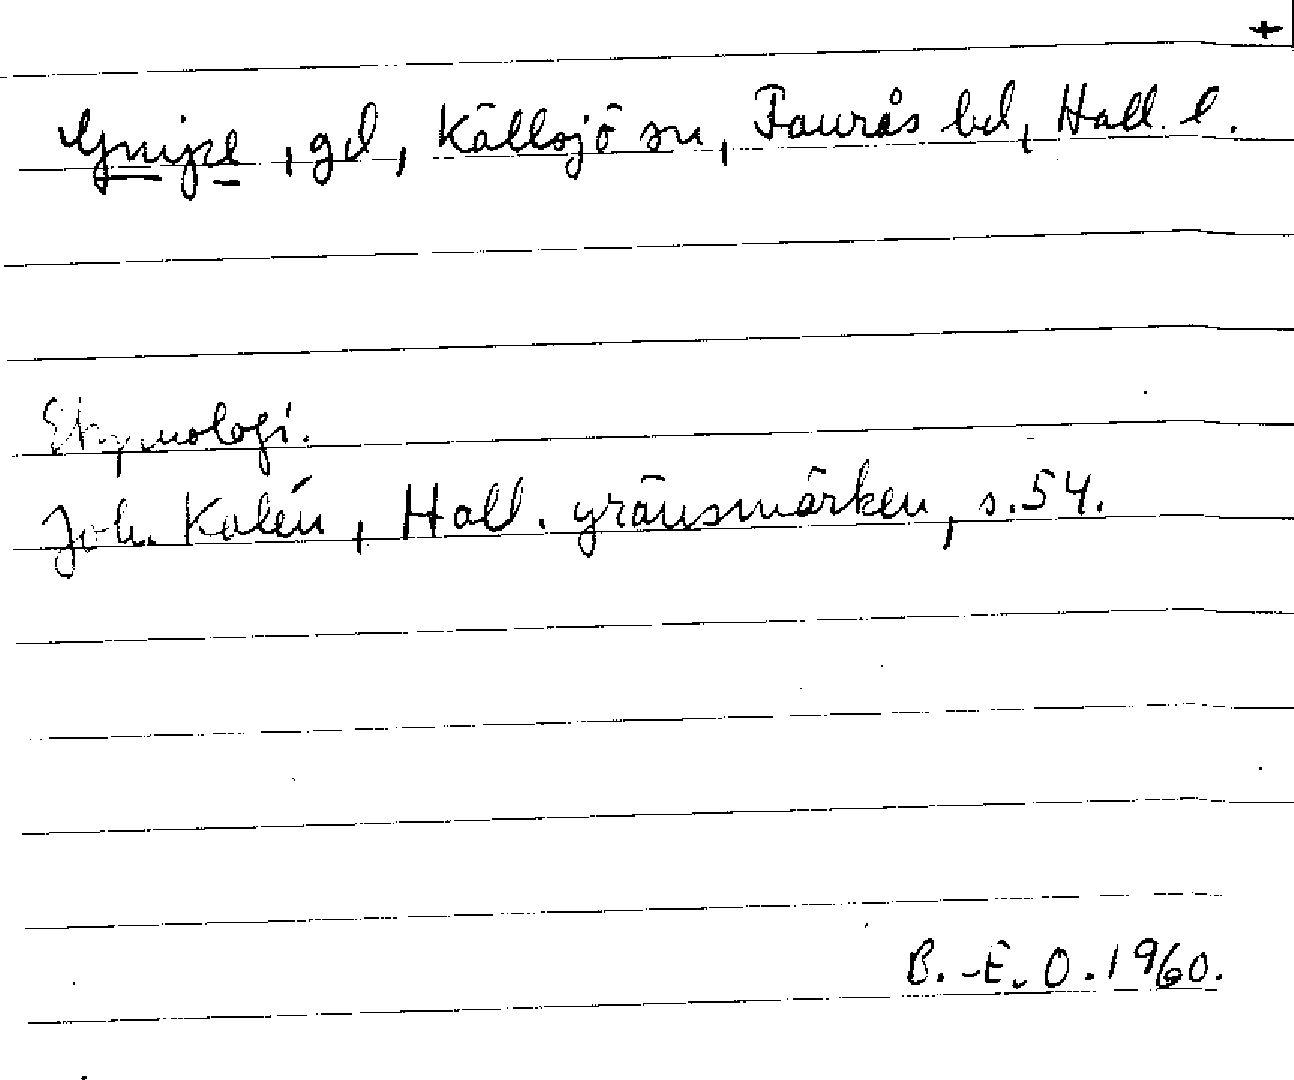 +
Gnipe, gd, Källsjö sn, Faurås hd, Hall. l.
Etymologi.
Joh. Kalén, Hall. gränsmärken, s. 54.
B.-E. O. 1960.